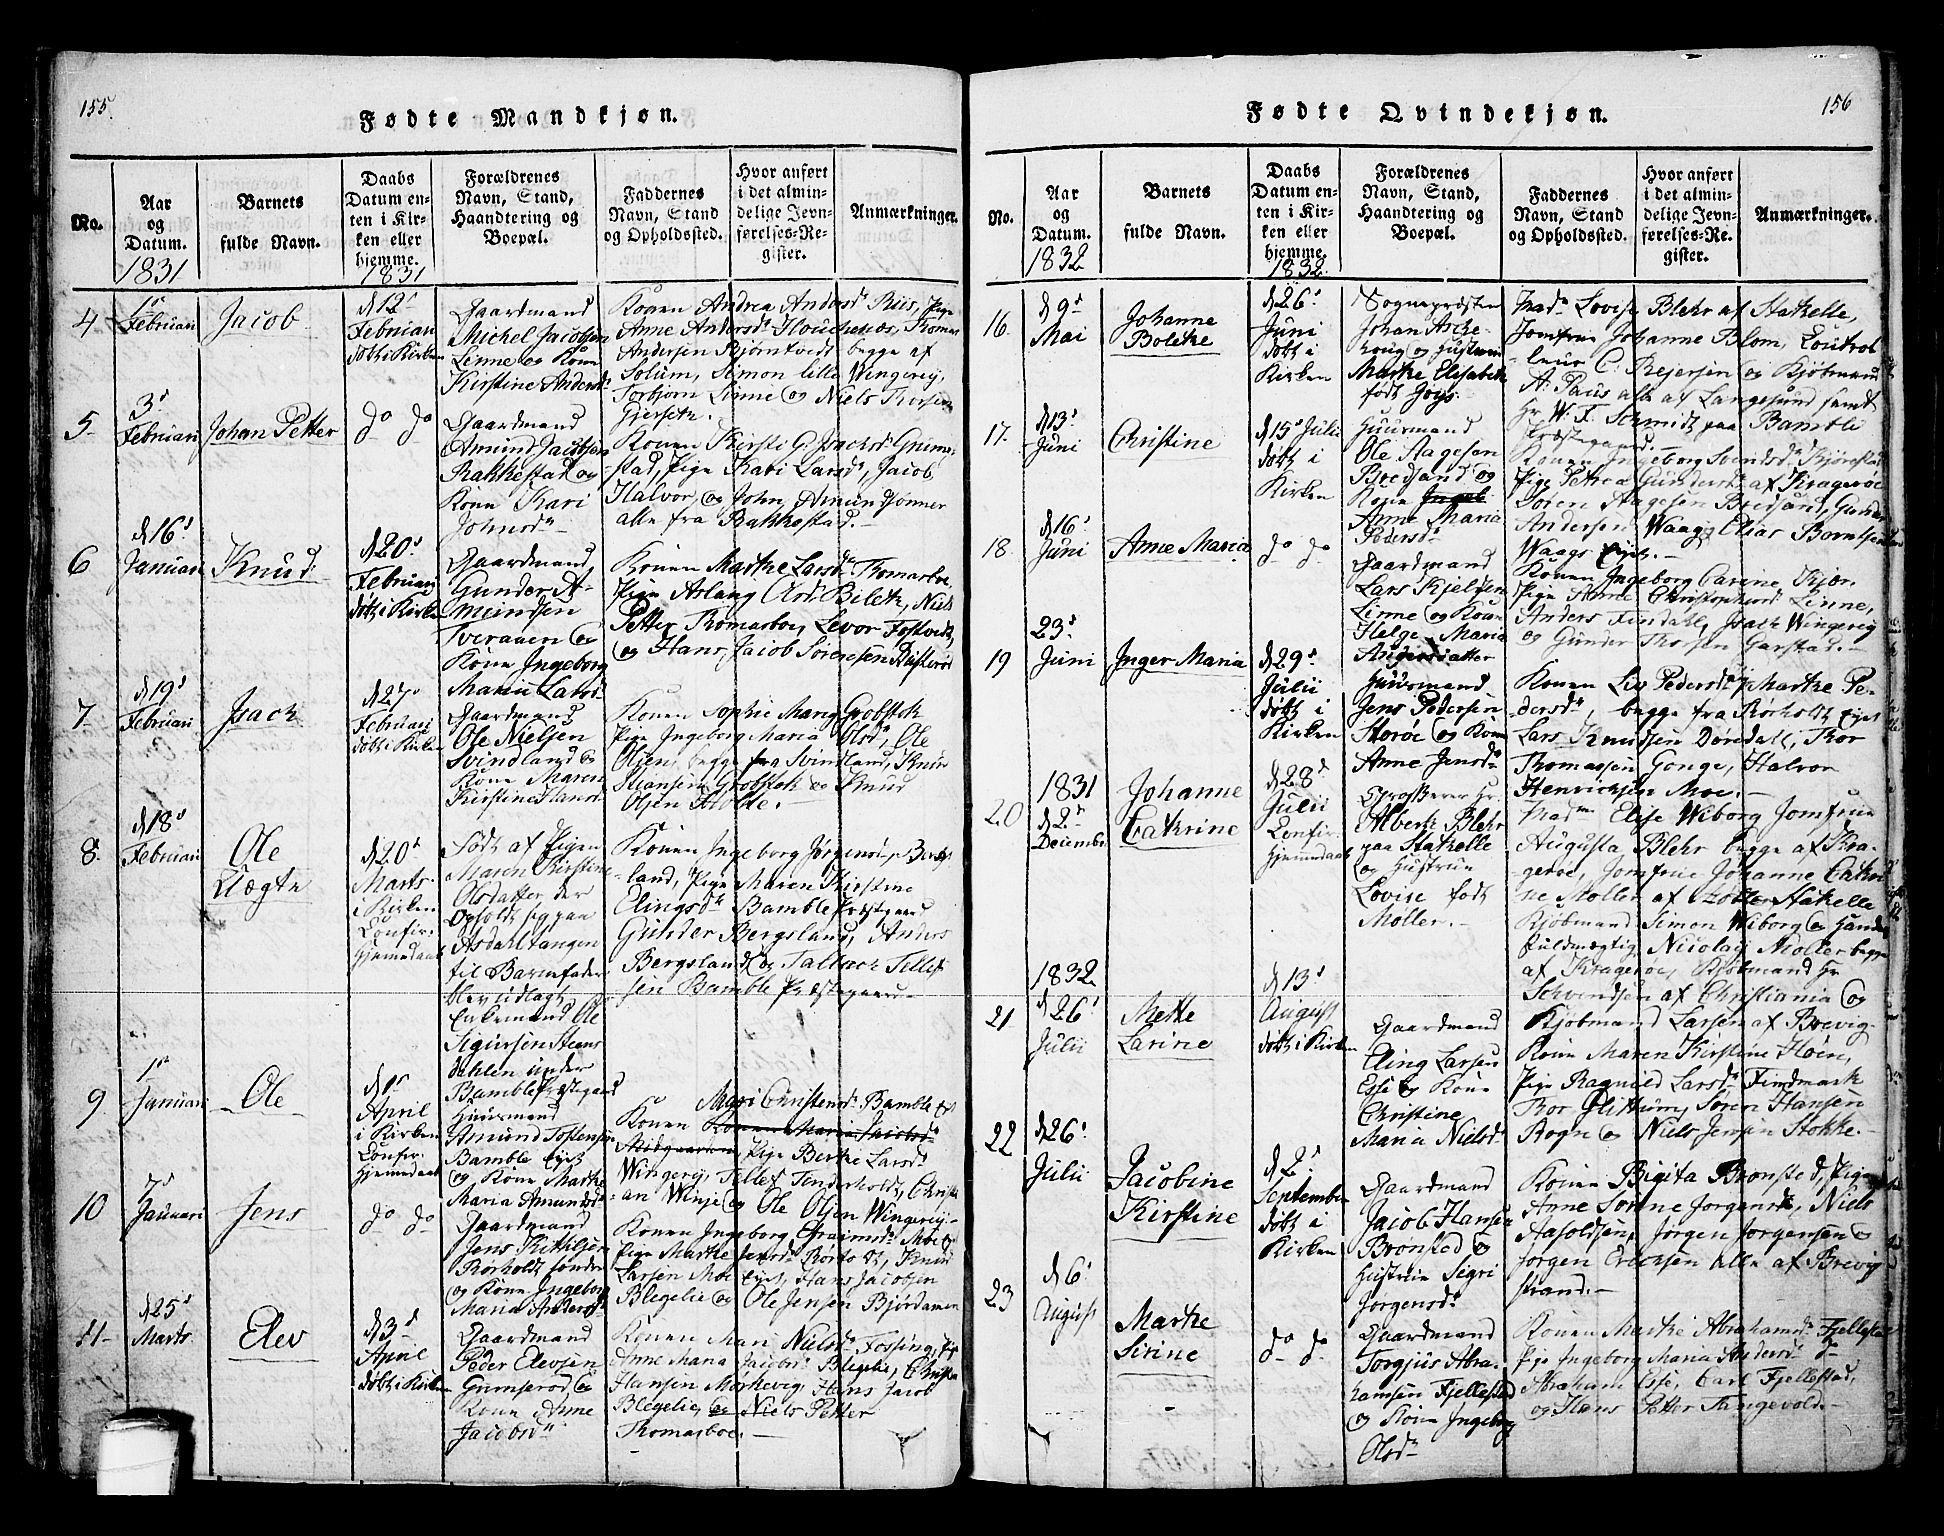 155.
Fødte Mandkjøn.
No.
Aar
og
Datum.
1831
Barnets
fulde Navn.
Daabs
Datum en-
ten i Kir-
ken eller
hjemme.
1831
Forældrenes
Navn, Stand,
Haandtering og
Boepæl.
Faddernes
Navn, Stand
og Opholdssted.
Hvor anført
i det almin-
delige Jevn-
førelses-Re-
gister.
Anmærkninger.
4
Februari
Jacob
d 12
Februari
døbt i Kirken
Gaardmand
Michel Jacobsen
Linne og Kone
Kirstine Andersd
Konen Andrea Andersd Riis, Pige
Anne Andersd Thomas
Andersen Bjørntvedt begge af
Solum, Simon lille Wingereij,
Torbjørn Linne og Niels Thorsen
Gjerseth.
5
3
Februari
Johan Petter
do do
Gaardmand
Amund Jacobsen
Rakkestad og
Kone Kari
Johnsd
Konen Kirsti Isachsd Grimme-
stad, Pige Kari Larsd, Jacob
Halvor, og John
alle fra Rakkestad.
6
d 16
Januari
Knud
d 20
Februari
døbt i Kirken
Gaardmand
Gunder A-
mundsen
Tveraaen og
Kone Ingeborg
Maria Larsd
Konen Marthe Larsd Thomasboe
Pige Aslaug Bileth, Niels
Petter Thomasboe, Levor Tostvedt,
og Hans Jacob Sørensen
7
d 19
Februari
Isach
d 27
Februari
døbt i Kirken
Gaardmand
Ole Nielsen
Svindland og
Kone Maren
Kirstine Hansd
Konen Sophie Marg Grobstok
Pige Ingeborg Maria Olsd, Ole
Olsen, begge fra Svindland, Knud
Hansen Grobstok og Knud
Olsen Stokke.
8
d 18
Februari
Ole
Uægte
d 20
Marts
i Kirken
Confir:
Hjemmdaab
Født af Pigen
Maren Kirstine
Olsdatter, der
opholdt sig paa
Asdahltangen
til Barnefader
blev udlagt
Enkemand Ole
Sigursen Steens
dahlen under
Bamble Præstegaard
Konen Ingeborg Jørgensd Bergs-
land, Pige Maren Kirstine
Elingsd Bamble Præstegaard
Gunder Bergsland, Anders
Bergsland og Tallach Tellef
sen Bamble Præstegaard.
9
1
Januari
Ole
d 1
April
i Kirken
Confir:
Hjemmdaab
Huusmand
Amund Tostensen
Bamble Eyet
og Kone Marthe
Maria Amundsd
Mari Christensd Bamble Eyt
Konen
Pige Berthe Larsd
Wingereij, Tellef Tenderholt, Christi-
an Winje og Ole Olsen Wingereij
10
7
Januari
Jens
do do
Gaardmand
Jens Kittilsen
Rørholt søndre
og Kone Ingeborg
Maria Andersd
Konen Ingeborg Efraimsd Moe
Pige Marthe Jensd Rørholt, Knud
Larsen Moe Eyet, Hans Jacobsen
Blegelie og Ole Jensen Bjørdamen
11
d 25
Marts
Elev
d 3
April
døbt i Kirken
Gaardmand
Peder Elevsen
Gumserod og
Kone Anne
Jacobsd
Konen Mari Nielsd Fossing, Pige
Anne Maria Jacobsd Blegelie, Christen
Hansen Mørkevig, Hans Jacob
Blegelie, og Niels Petter
Thomasboe.
156
Fødte Qvindekjøn.
No.
Aar
og
Datum.
1832
Barnets
fulde Navn.
Daabs
Datum en-
ten i Kir-
ken eller
hjemme.
1832
Forældrenes
Navn, Stand,
Haandtering og
Boepæl.
Faddernes
Navn, Stand
og Opholdssted.
Hvor anført
i det almin-
delige Jevn-
førelses-Re-
gister.
Anmærkninger.
16
d 9
Mai
Johanne
Bolette
d 26
Juni
døbt i
Kirken
Sognepræsten
Johan Aske-
houg og Hustrue
Marthe Elisabeth
født Goys
Mad Lovise Blehr af Stathelle,
Jomfrue Johanne Blom, Control-
leur C. Rejersen og Kjøbmand
A. Paus alle af Langesund samt
Hr W. F. Schmidt paa Bamble
Præstegaard.
17
d 13
Juni
Christine
d 15 Julii
døbt i
Kirken
Huusmand
Ole Aagesen
Bredsand og
Kone
Anne Maria
Pedersd
Konen Ingeborg Svendsd Kjørestad
Pige Petrea Gundersd af Kragerøe
Søren Aagesen Bredsand, Gunder
Andersen Waag, Elias Berntsen
Waags Eyet.
18
d 16
Juni
Anne Maria
do do
Gaardmand
Lars Kjelsen
Linne og Kone
Helge Maria
Andersdatter
Konen Ingeborg Carine Kjør
Pige Anne Christophersd Linne,
Anders Findahl, Isach Wingereij
og Gunder Thorsen Garstad.
19
23
Juni
Inger Maria
d 29
Julii
døbt i
Kirken
Huusmand
Jens Pedersen
Storøe og Kone
Anne Jensd
Konen Liv Pedersd, Marthe Pe-
dersd, begge fra Rørholt Eyet
Lars Knudsen Dørdal, Thor
Thomassen Gonge, Halvor
Henrichsen Moe.
20
1831
d 2
Decembr
Johanne
Cathrine
d 28
Julii
Confir:
Hjemmdaab
Grosserer Hr.
Albert Blehr
paa Stathelle
og Hustrue
Lovise født
Møller.
Madm Elise Wiborg, Jomfrue
Augusta Blehr begge af Kra-
gerøe, Jomfrue Johanne Cathri-
ne Møller af Stathelle
Kjøbmand Simon Wiborg og Handels
fuldmægtig Nicolay Møller begge
af Kragerøe, Kjøbmand Hr
Schvendsen af Christiania og
Kjøbmand Larsen af Brevig.
21
1832
d 26
Julii
Mette
Larine
d 13
August
døbt i Kirken
Gaardmand
Eling Larsen
Esse og Kone
Christine
Maria Nielsd
Konen Maren Kirstine Høen,
Pige Ragnild Larsd Findmark
Tor Flittum, Søren Hansen
Rogn og Niels Jensen Stokke.
22
d 26
Julii
Jacobine
Kirstine
d 2
September
døbt i
Kirken
Gaardmand
Jacob Hansen
Brønsted og
Hustrue Sigri
Jørgensd
Konen Bigita Brønsted, Pige
Anne Sorine Jørgensd, Niels
Aasoldsen, Jørgen Jørgensen og
Jørgen Ericksen alle af Brevig
strand.
23
d 6
August
Marthe
Sirine
do do
Gaardmand
Torgjus Abra-
hamsen Fjellestad
og Kone Ingeborg
Olsd
Konen Marthe Abrahamsd Fjellestad
Pige Ingeborg Maria Andersd do
Abraham Esse, Carl Fjellestad,
og Hans Petter Tangevold.